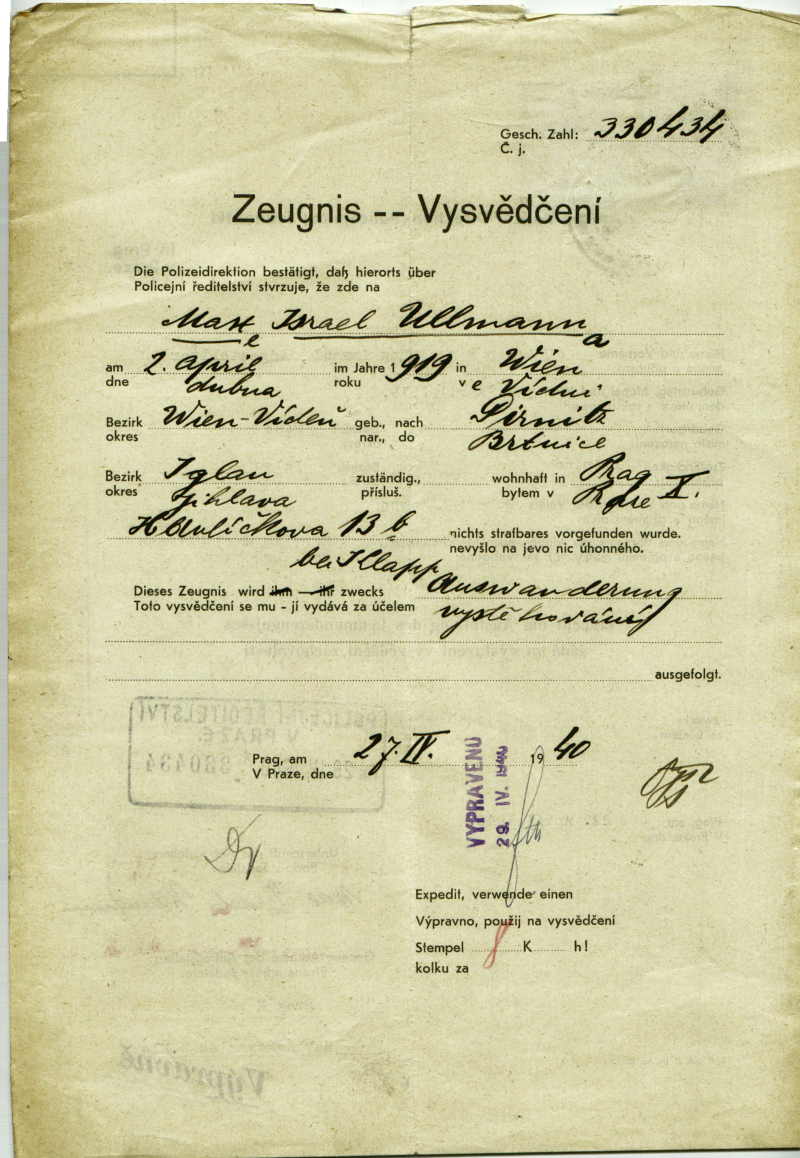 Gesch. Zahl: 330434
Č. j.
Zeugnis -- Vysvědčení
Die Polizeidirektion bestätigt, daß hierorts über
Policejní ředitelství stvrzuje, že zde na
Max e Israel Ullmann a
am 2. April im Jahre 1919 in Wien
dne dubna roku v e Vídni
Bezirk Wien-Vídeň geb., nach Pirnitz
okres nar., do Brtnice
Bezirk Iglau zuständig., wohnhaft in Prag X.
okres Jihlava přísluš. bytem v Praze
Havlíčkova 13 b nichts strafbares vorgefunden wurde.
nevyšlo na jevo nic úhonného.
bei Klapp
Dieses Zeugnis wird ihm — ihr zwecks Auswanderung
Toto vysvědčení se mu - jí vydává za účelem vystěhování
ausgefolgt.
POLICEJNÍ ŘEDITELSTVÍ
V PRAZE
330434
Prag, am 27. IV. 1940
V Praze, dne
VYPRAVENO
29. IV. 1940
Expedit, verwende einen
Výpravno, použij na vysvědčení
Stempel 8 K h!
kolku za
Výpravně